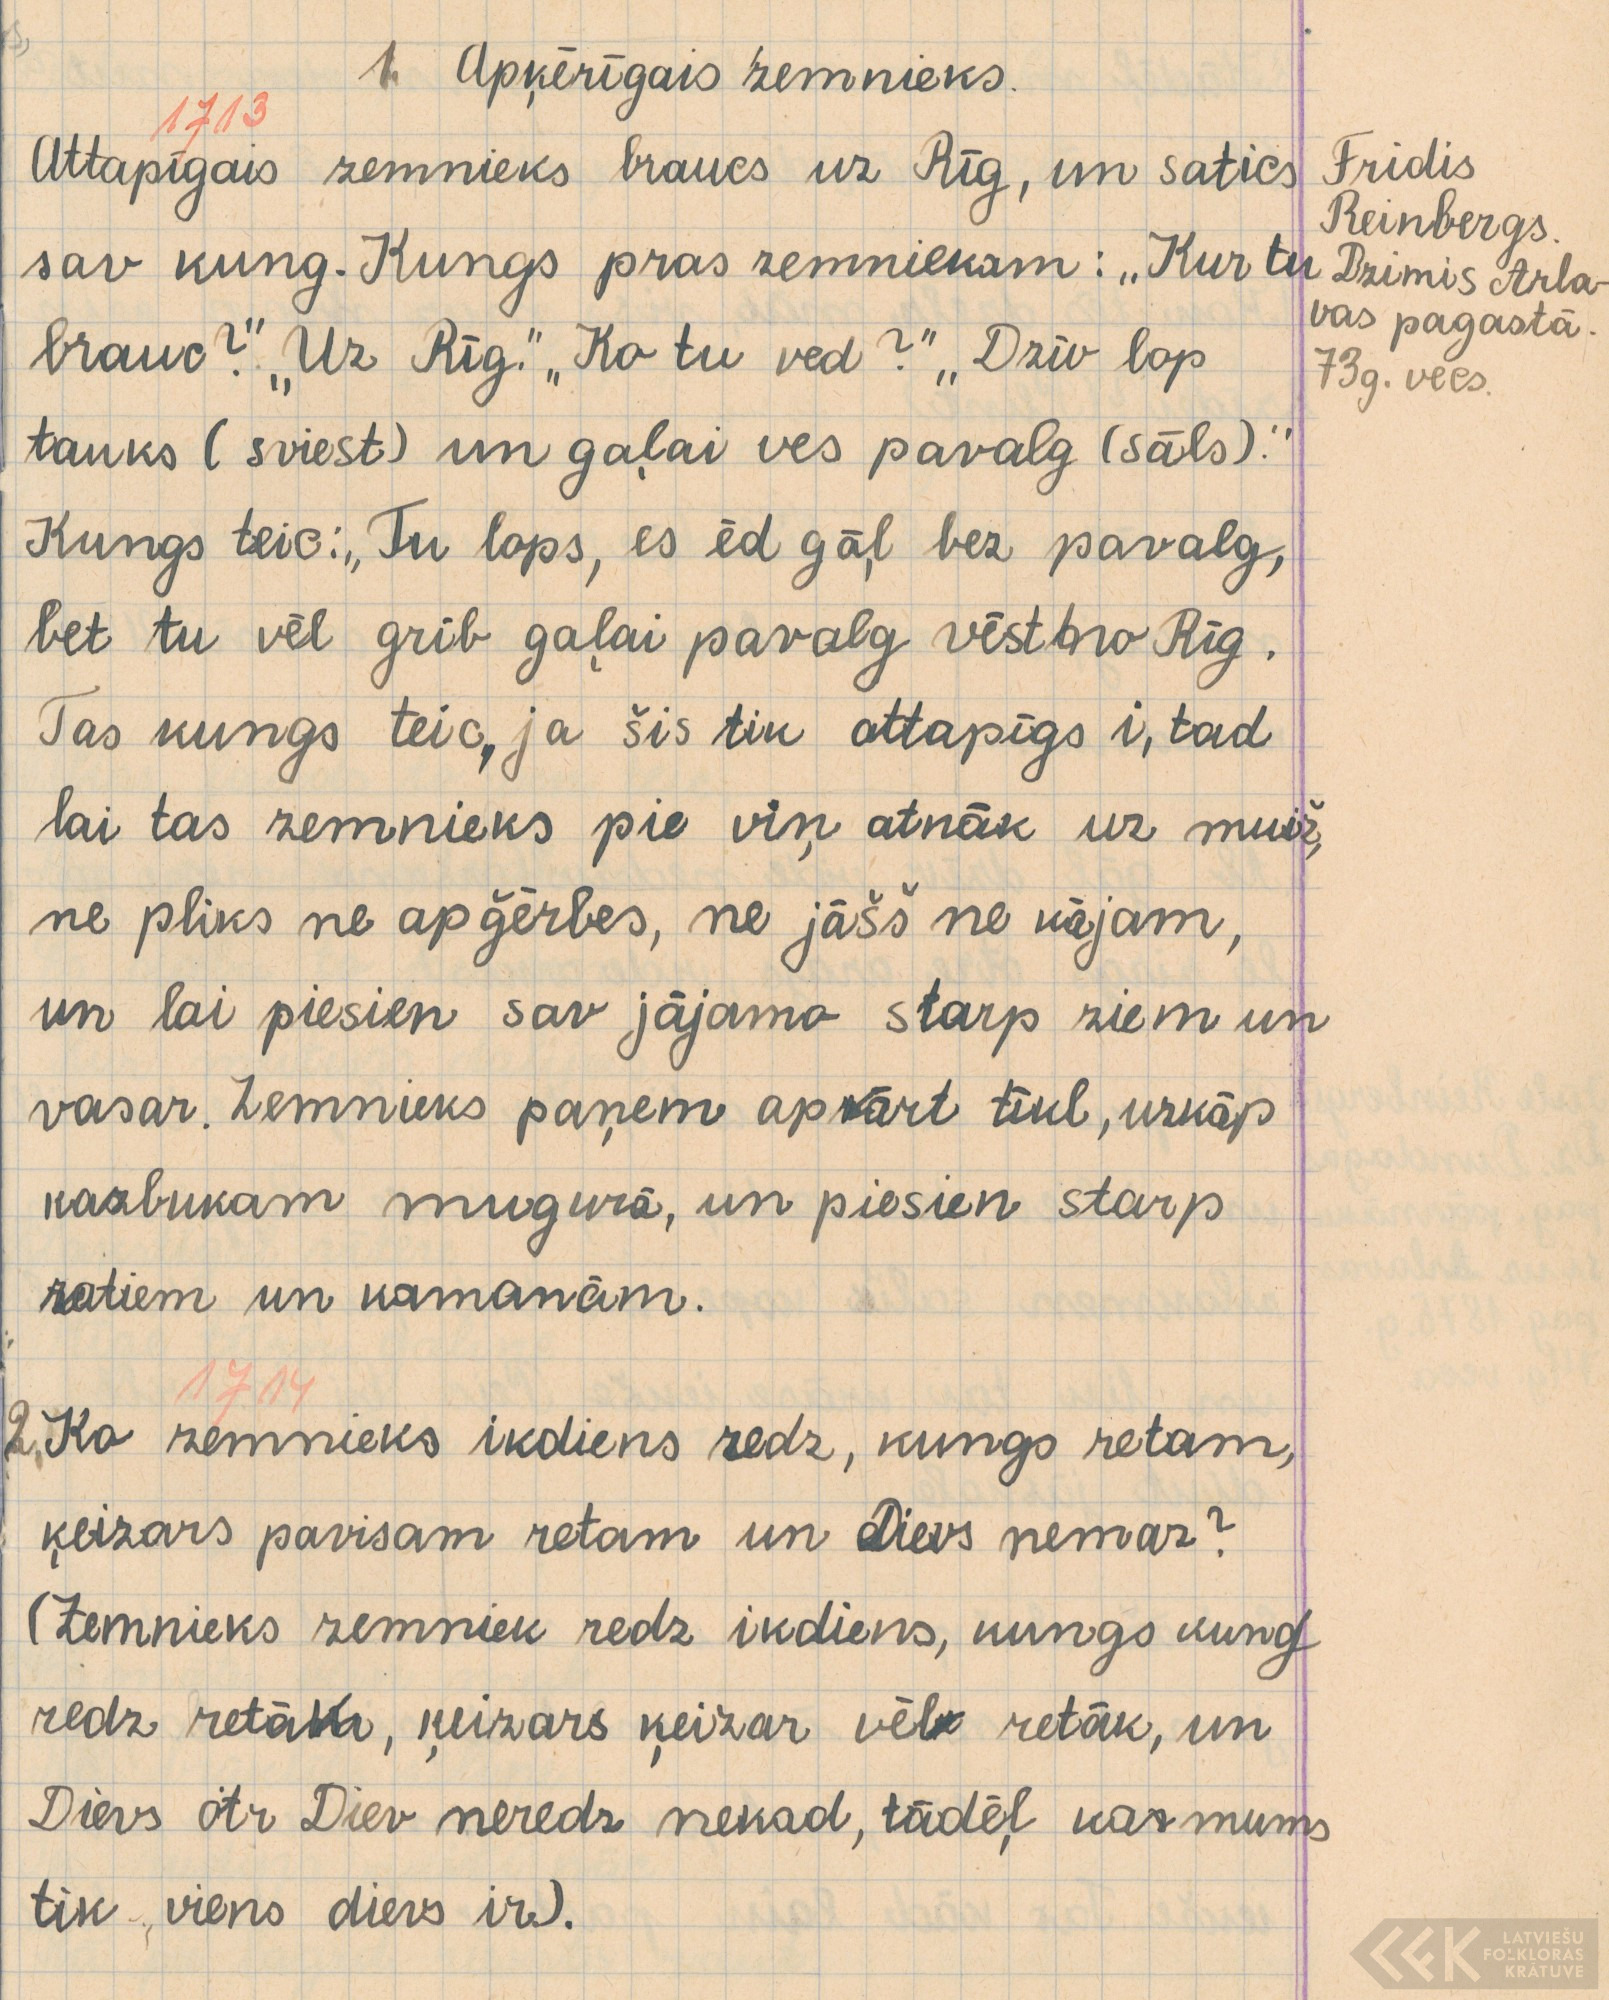 1. Apķērīgais zemnieks.
1713
Attapīgais zemnieks braucs uz Rīg, un satics
sav kung. Kungs pras zemniekam: „Kur tu
brauc?" „Uz Rīg." „Ko tu ved?" „Dzīv lop
tauks (sviest) un gaļai ves pavalg (sāls)."
Kungs teic: „Tu lops, es ēd gāļ bez pavalg,
bet tu vēl grib gaļai pavalg vēst no Rīg.
Tas kungs teic, ja šis tik attapīgs i, tad
lai tas zemnieks pie viņ atnāk uz muiž,
ne pliks ne apģērbes, ne jāšš ne kājam,
un lai piesien sav jājamo starp ziem un
vasar. Zemnieks paņem apkārt tīkl, uzkāp
kazbukam mugurā, un piesien starp
ratiem un kamanām.
1714
2. Ko zemnieks ikdiens redz, kungs retam,
ķeizars pavisam retam un Dievs nemaz?
(Zemnieks zemniek redz ikdiens, kungs kung
redz retāk, ķeizars ķeizar vēl retāk, un
Dievs otr Diev neredz nekad, tādēļ ka mums
tik viens dievs ir).
Fridis
Reinbergs.
Dzimis Arla-
vas pagastā.
73g. vecs.
LATVIEŠU
FOLKLORAS
KRĀTUVE